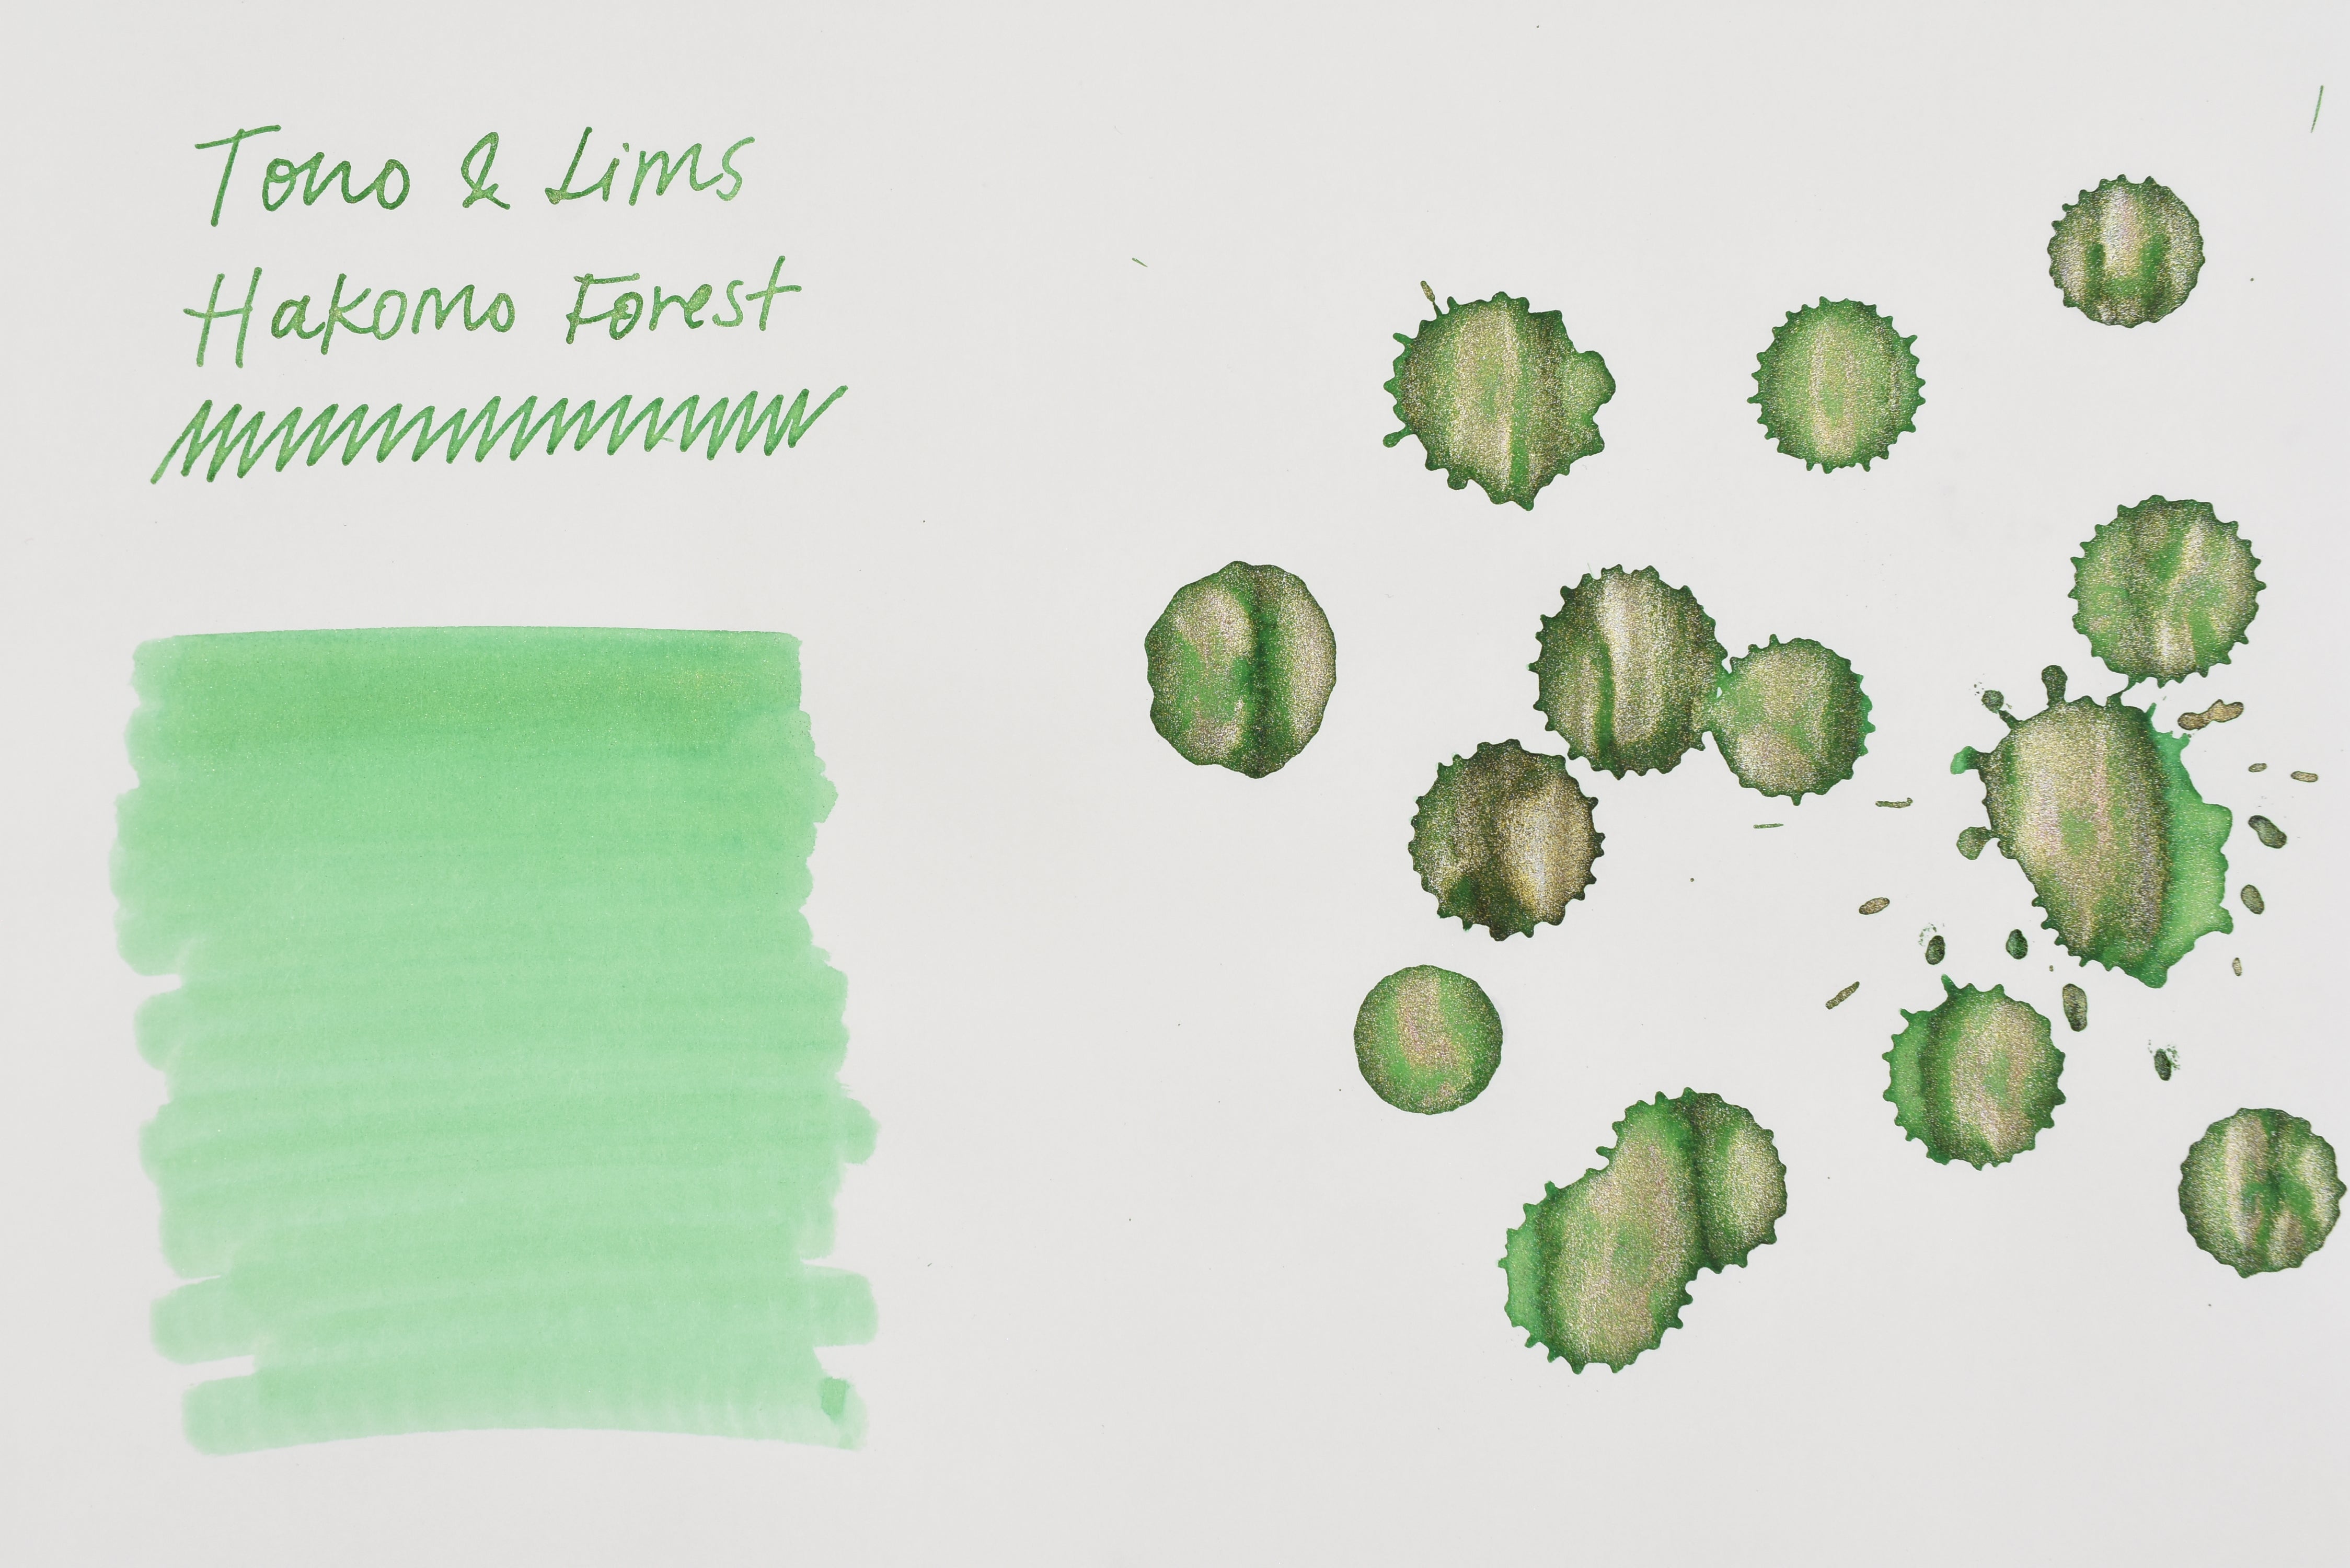 Tono & Lims
Hakomo Forest